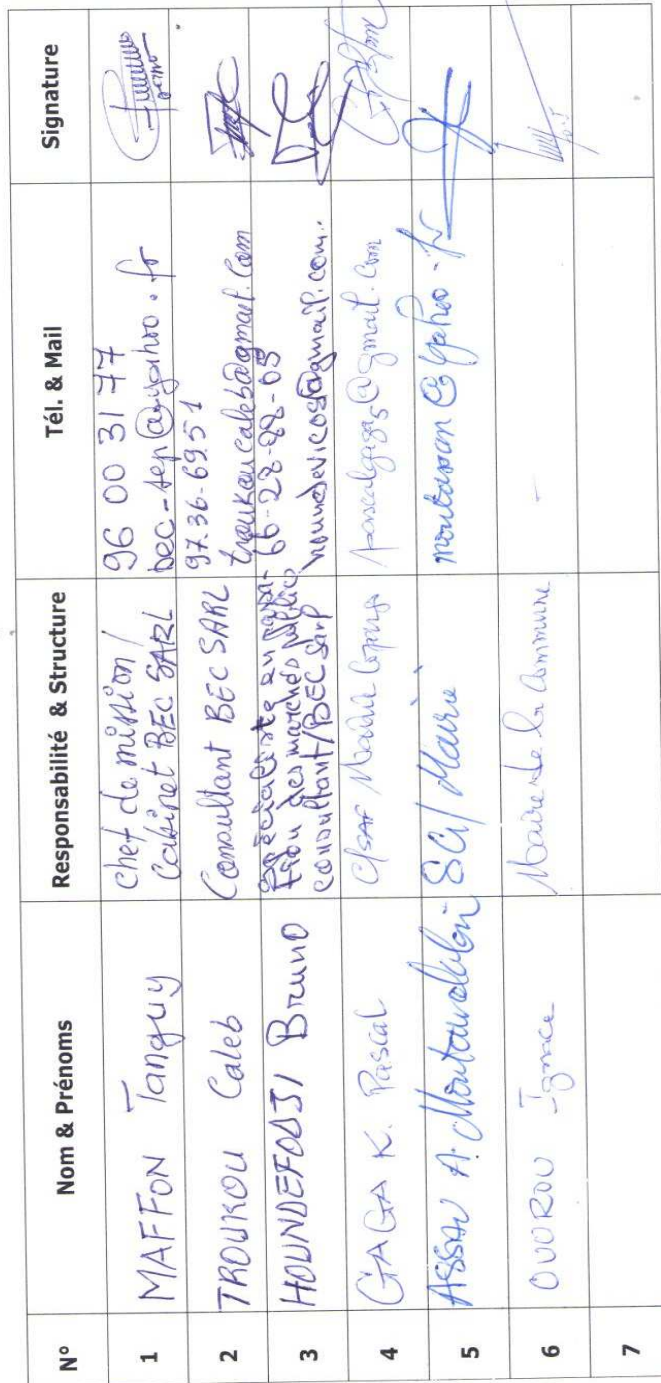 N° Nom & Prénoms Responsabilité & Structure Tél. & Mail Signature
1 MAFFON Tanguy Chef de mission / Cabinet BEC SARL 96 00 31 77
bec-sep@yahoo.fr
2 TROUKOU Caleb Consultant BEC SARL 97.36-69.51
troukoucaleb@gmail.com
3 HOUNDEFODJI Bruno Spécialiste en passation des marchés publics
consultant/BEC Sarl 66-28-88-05
4 GAGA K. Pascal C/SAF Mairie
5 ASSAN A. SG/Mairie
6 OUOROU Ignace Maire de la Commune -
7